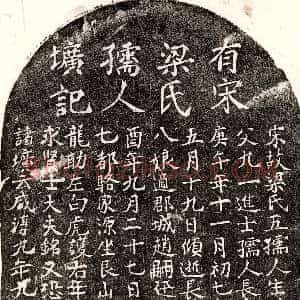 有宋
梁氏
孺人
壙記
宋故梁氏五孺人生
父九一進士孺人長
庚午年十一月初七
五月十九日傾逝長
八娘適郡城趙嗣廷
酉年九月二十七日
七都駱家源坐艮山
龍助左白虎護右年
求賢士大夫銘又恐
諸壙云咸淳九年九